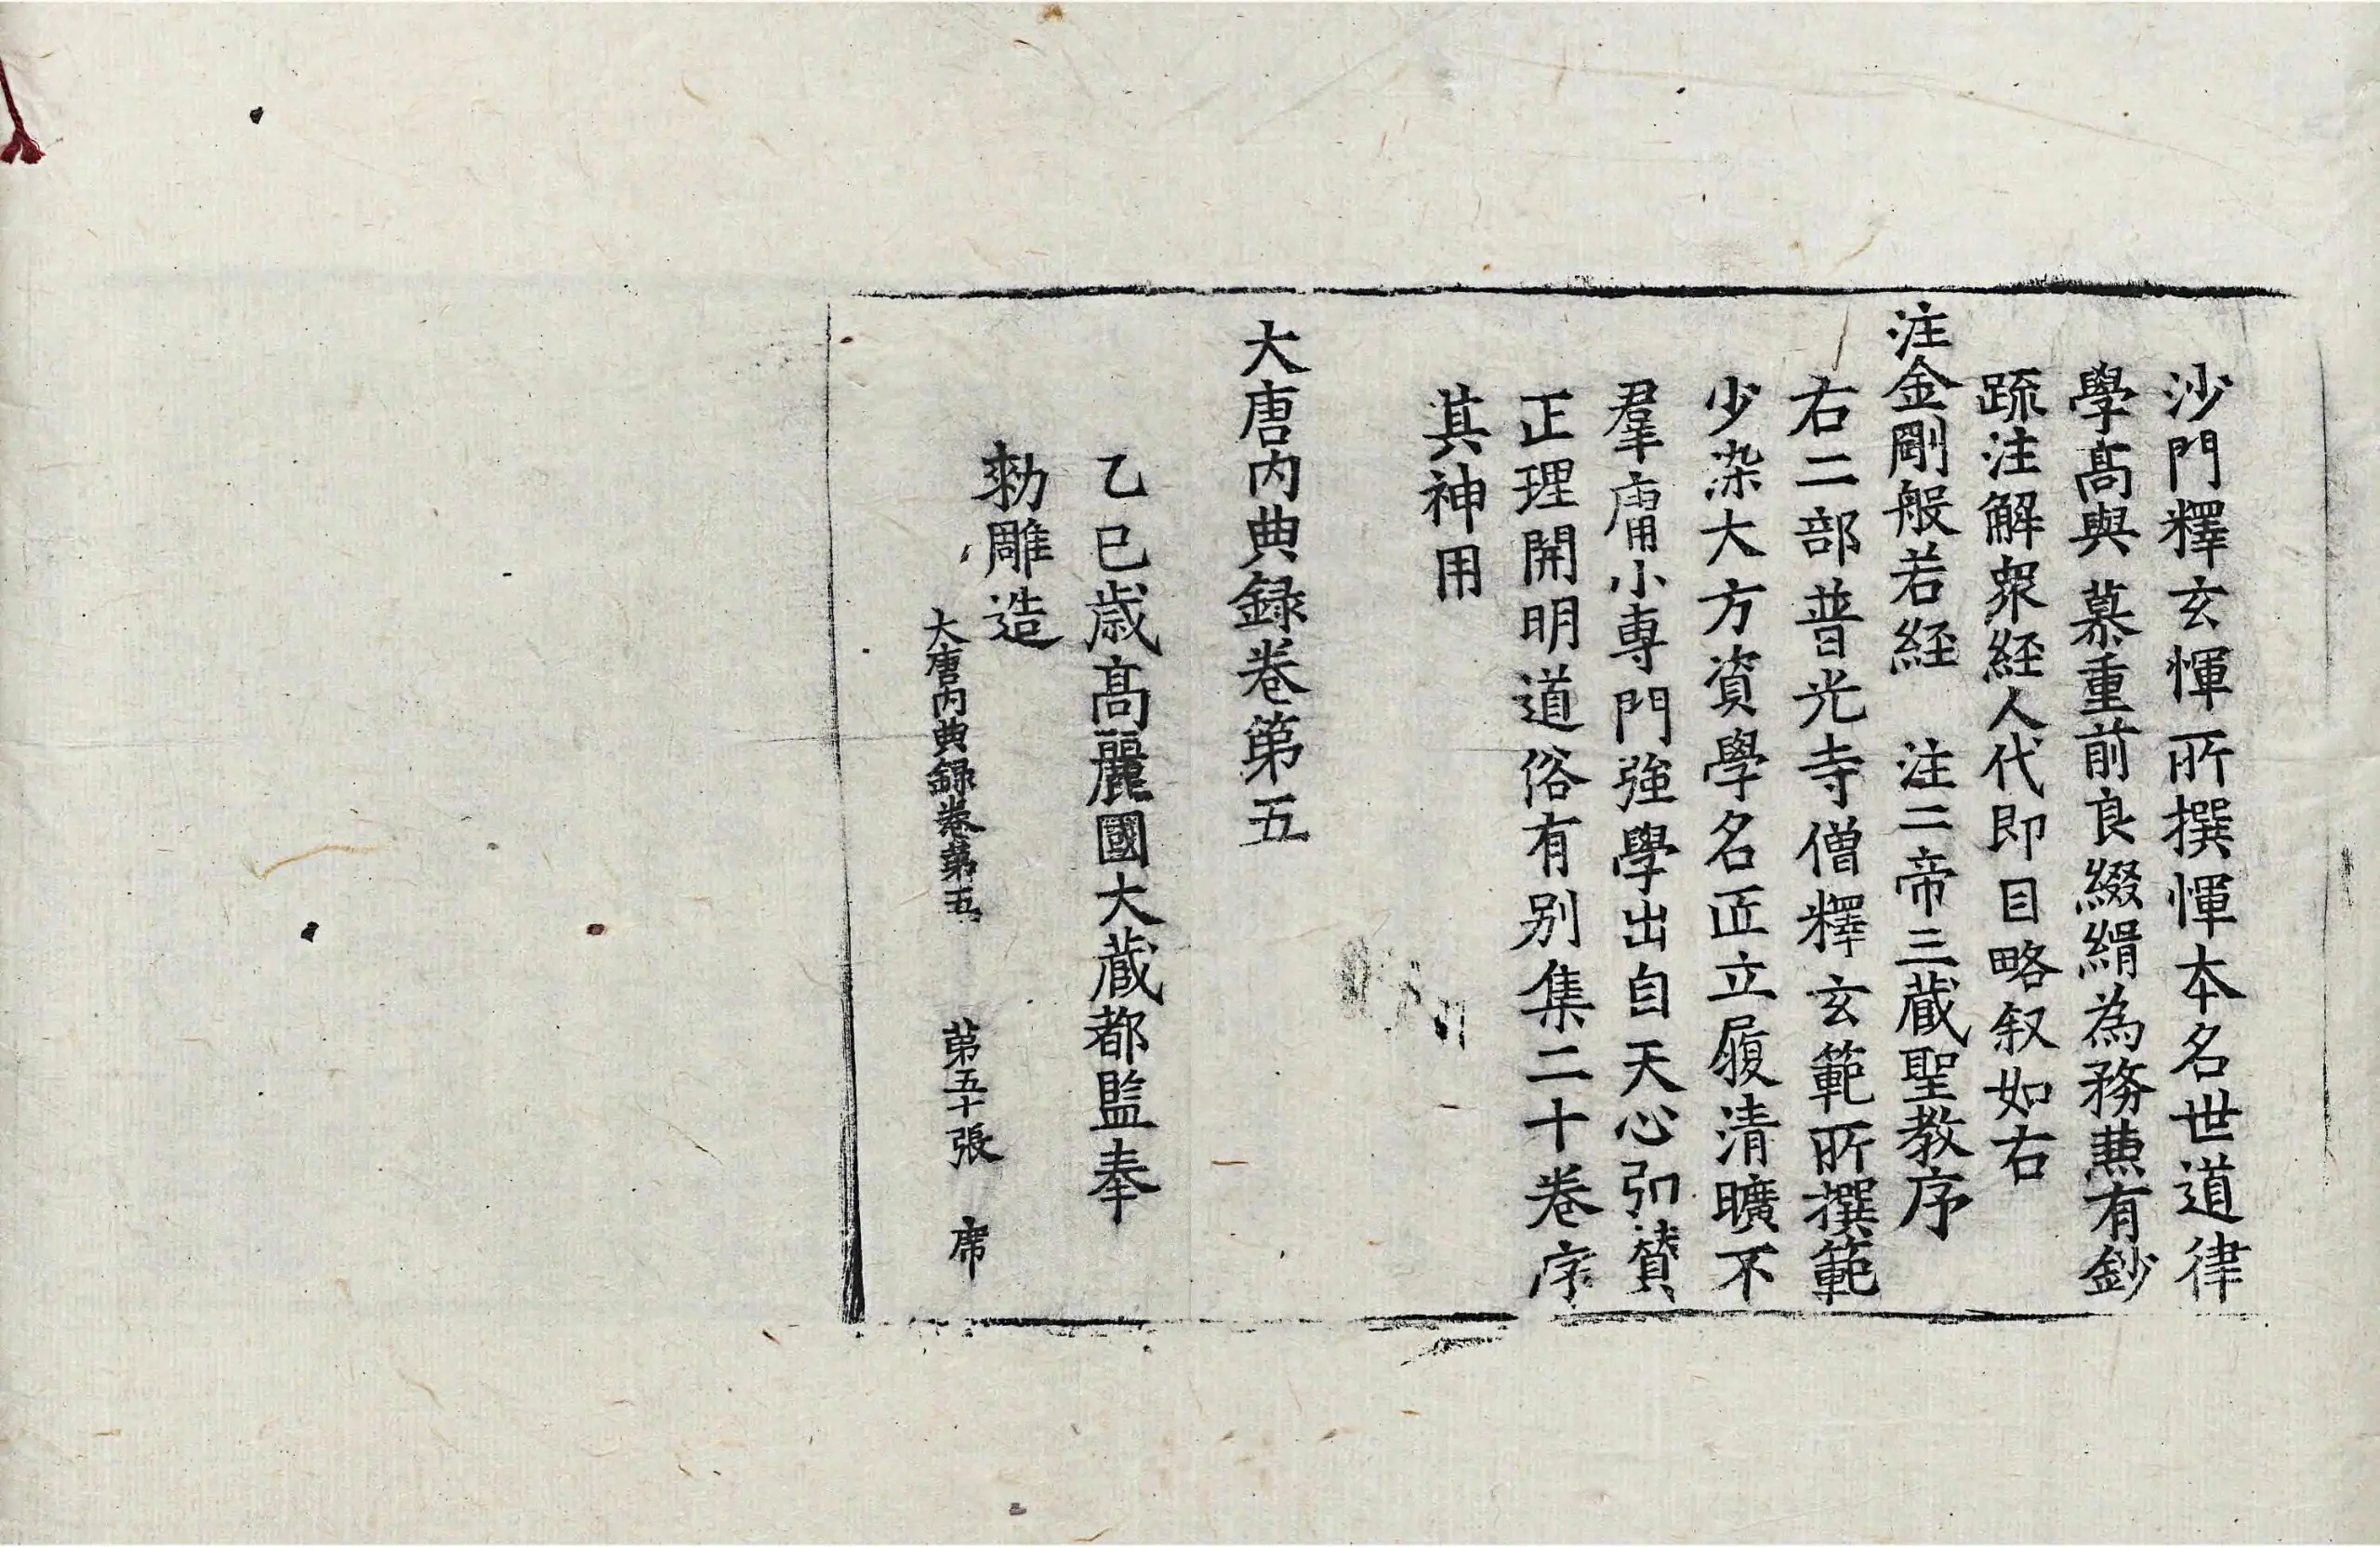 沙門釋玄惲所撰惲本名世道律
學髙與慕重前良綴緝為務𠔥有鈔
䟽注解衆経人代即目略叙如右
注金剛般若経　注二帝三蔵聖教序
右二部普光寺僧釋玄範所撰範
少染大方資學名匠立履清曠不
羣庸小専門強學出自天心引賛
正理開明道俗有别集二十卷序
其神用
大唐内典録卷第五
乙巳歳髙麗國大蔵都監奉
勑雕造
大唐内典録卷第五　第五十張　席